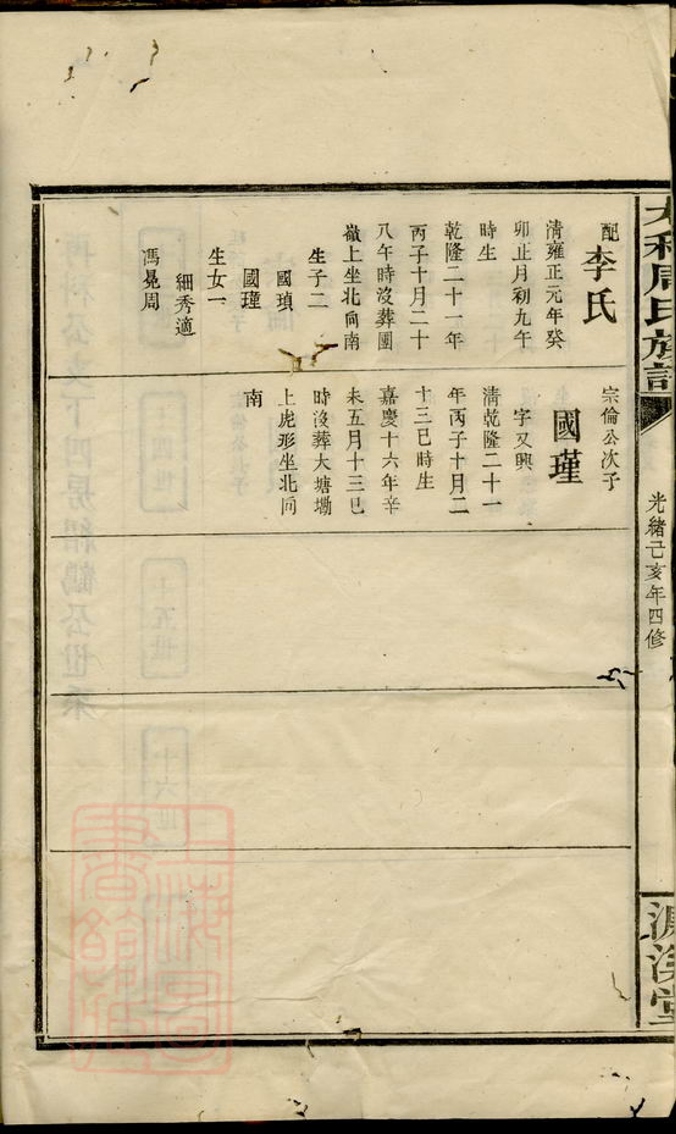 大和周氏族譜
光緒己亥年四修
濂溪堂
配李氏
清雍正元年癸
卯正月初九午
時生
乾隆二十一年
丙子十月二十
八午時沒葬團
嶺上坐北向南
生子二
國瑱
國瑾
生女一
細秀適
馮晃周
宗倫公次子
國瑾
字又興
清乾隆二十一
年丙子十月二
十三巳時生
嘉慶十六年辛
未五月十三巳
時沒葬大塘塝
上虎形坐北向
南